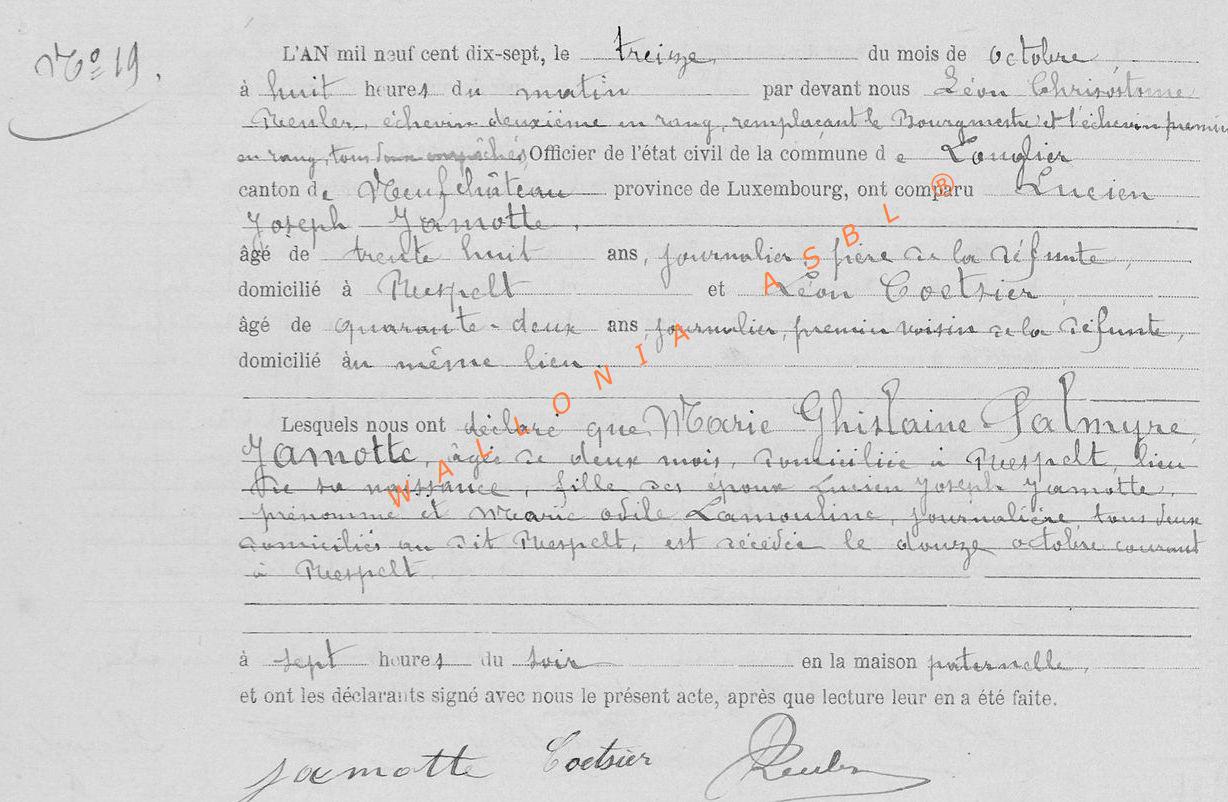 Nº 19.
L'AN mil neuf cent dix-sept, le treize du mois de octobre
à huit heures du matin par devant nous Léon Chrisostome
Reuler, échevin deuxième en rang, remplaçant le Bourgmestre et l'échevin premier
en rang, tous deux empêchés, Officier de l'état civil de la commune de Longlier
canton de Neufchâteau province de Luxembourg, ont comparu Lucien
Joseph Jamotte,
âgé de trente huit ans, journalier, père de la défunte,
domicilié à Respelt et Léon Coetsier,
âgé de quarante-deux ans, journalier, premier voisin de la défunte,
domicilié àu même lieu.
Lesquels nous ont déclaré que Marie Ghislaine Palmyre
Jamotte, âgée de deux mois, domiciliée à Respelt, lieu
de sa naissance, fille des époux Lucien Joseph Jamotte,
prénommé et Marie Odile Lamouline, journalière, tous deux
domiciliés au dit Respelt, est décédée le douze octobre courant
à Respelt
à sept heures du soir en la maison paternelle,
et ont les déclarants signé avec nous le présent acte, après que lecture leur en a été faite.
Jamotte Coetsier Reuler
WALLONIA ASBL ®